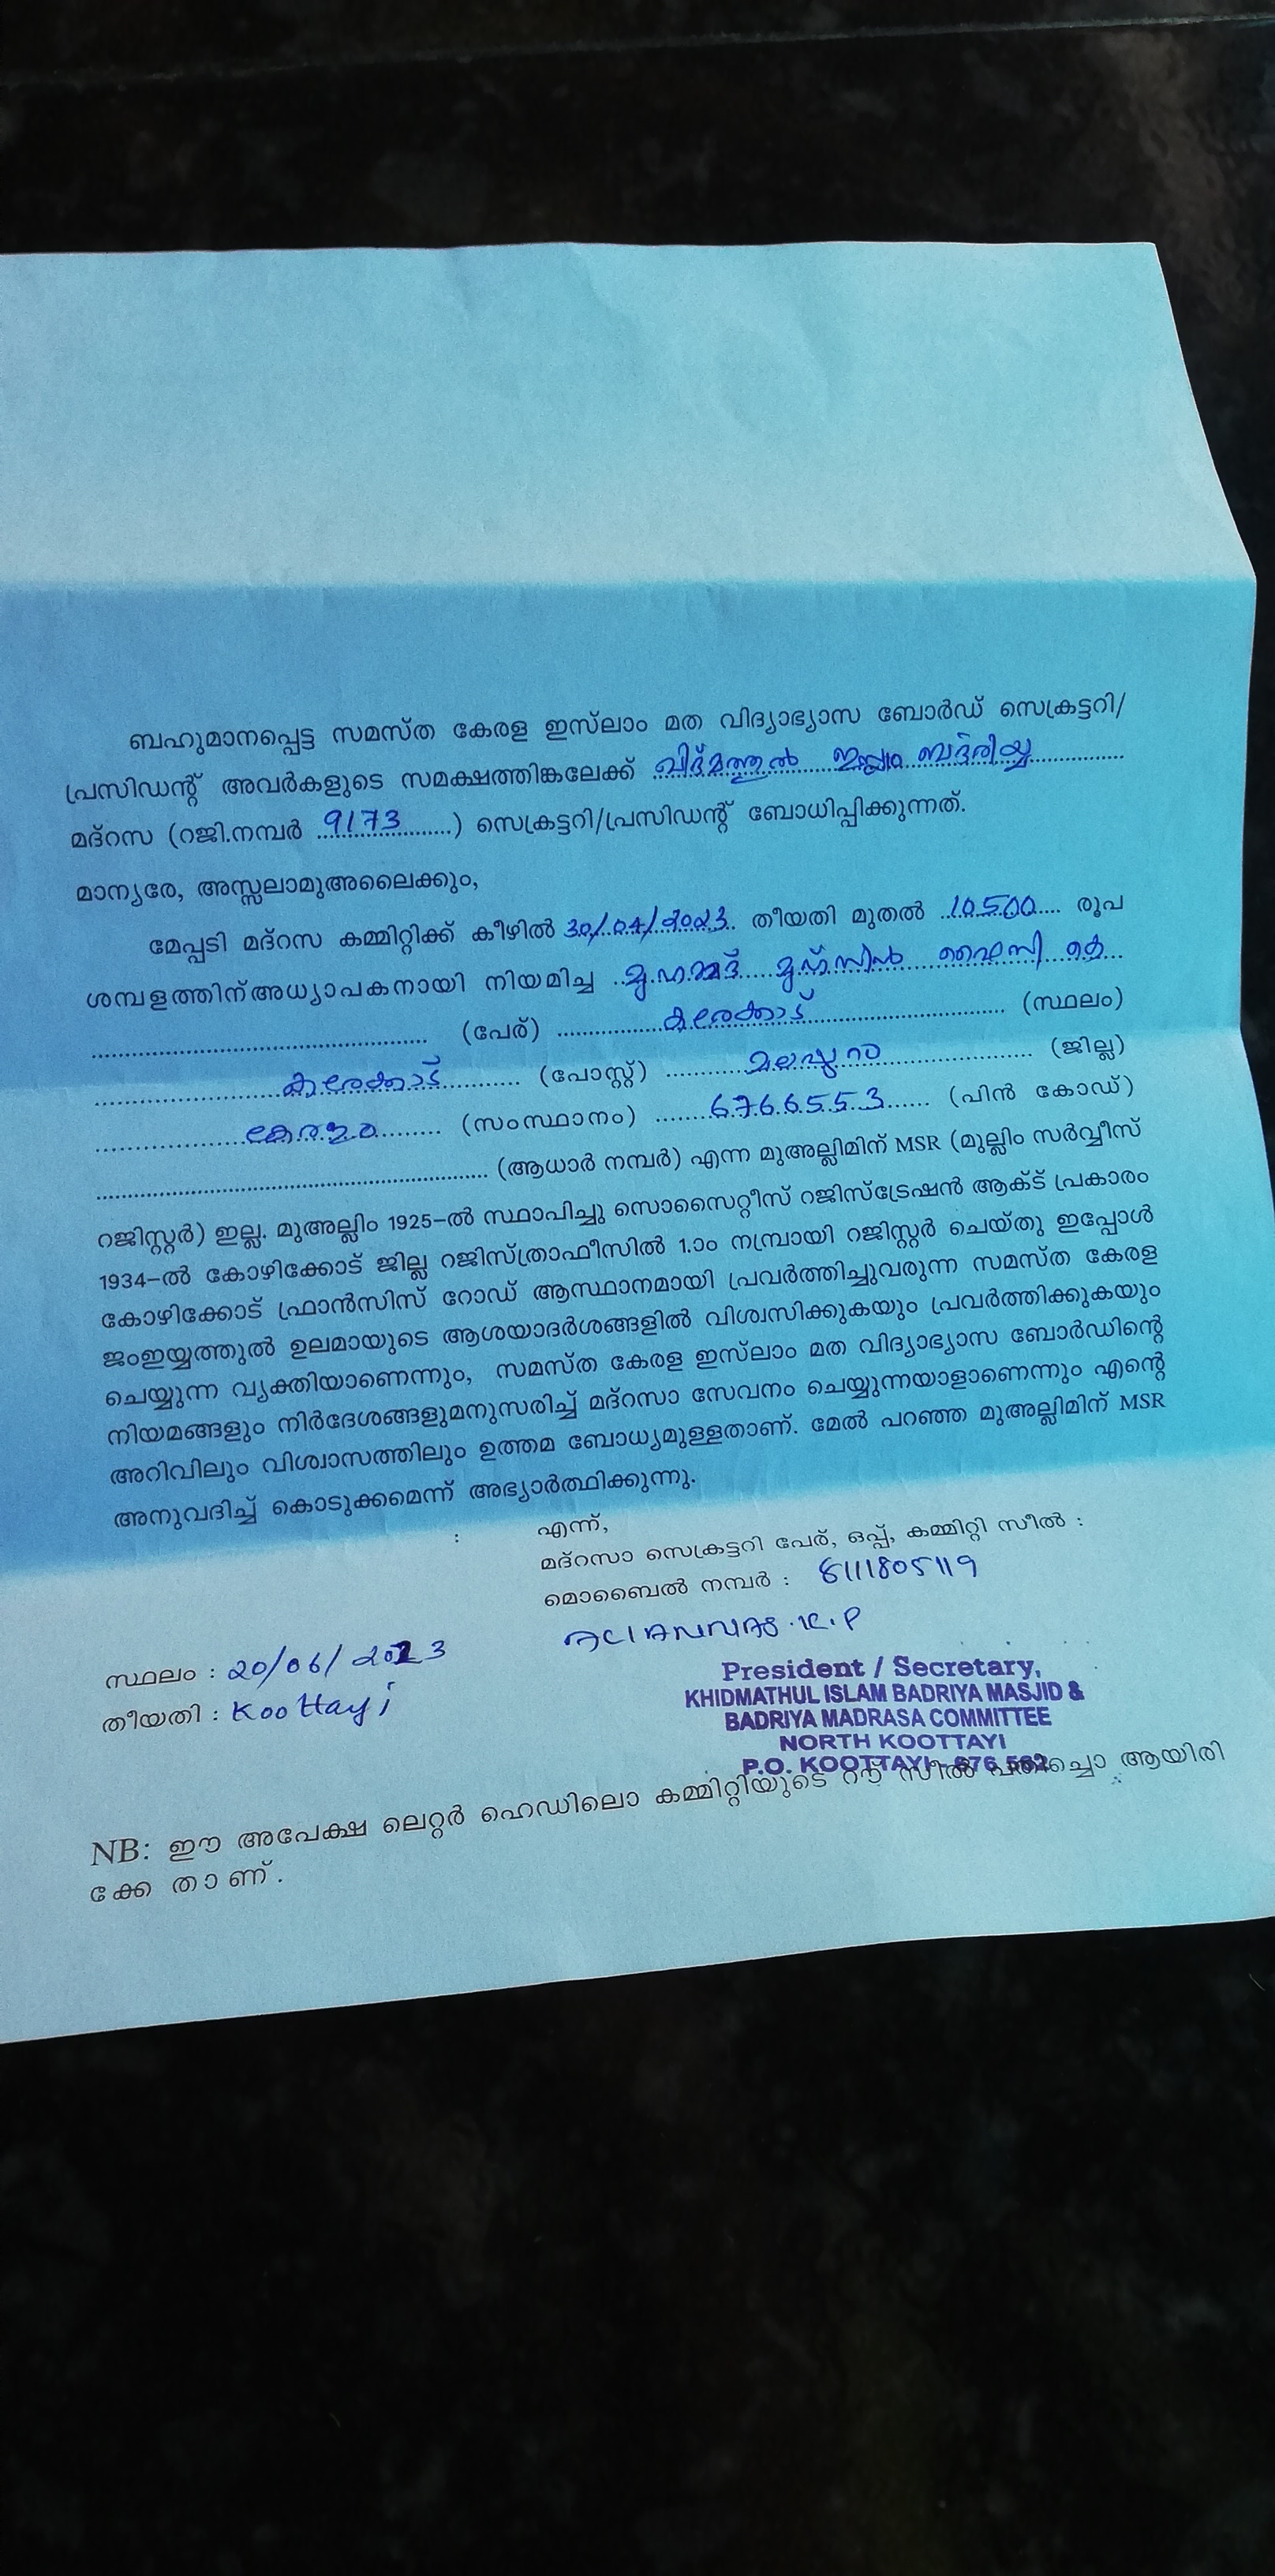 ബഹുമാനപ്പെട്ട സമസ്ത കേരള ഇസ്‌ലാം മത വിദ്യാഭ്യാസ ബോർഡ് സെക്രട്ടറി/
പ്രസിഡന്റ് അവർകളുടെ സമക്ഷത്തിങ്കലേക്ക് ഖിദ്മത്തുൽ ഇസ്ലാം ബദ്‌രിയ്യ
മദ്റസ (റജി.നമ്പർ 9173) സെക്രട്ടറി/പ്രസിഡന്റ് ബോധിപ്പിക്കുന്നത്.
മാന്യരേ, അസ്സലാമുഅലൈക്കും,
മേപ്പടി മദ്റസ കമ്മിറ്റിക്ക് കീഴിൽ 30/04/2023 തീയതി മുതൽ 10500 രൂപ
ശമ്പളത്തിന്അധ്യാപകനായി നിയമിച്ച മുഹമ്മദ് മുഹ്സിൻ ഫൈസി കെ
(പേര്) കരേക്കാട് (സ്ഥലം)
കരേക്കാട് (പോസ്റ്റ്) മലപ്പുറം (ജില്ല)
കേരളം (സംസ്ഥാനം) 6766553 (പിൻ കോഡ്)
(ആധാർ നമ്പർ) എന്ന മുഅല്ലിമിന് MSR (മുല്ലിം സർവ്വീസ്
റജിസ്റ്റർ) ഇല്ല. മുഅല്ലിം 1925-ൽ സ്ഥാപിച്ചു സൊസൈറ്റീസ് റജിസ്ട്രേഷൻ ആക്ട് പ്രകാരം
1934-ൽ കോഴിക്കോട് ജില്ല റജിസ്ത്രാഫീസിൽ 1.ാം നമ്പ്രായി റജിസ്റ്റർ ചെയ്തു ഇപ്പോൾ
കോഴിക്കോട് ഫ്രാൻസിസ് റോഡ് ആസ്ഥാനമായി പ്രവർത്തിച്ചുവരുന്ന സമസ്ത കേരള
ജംഇയ്യത്തുൽ ഉലമായുടെ ആശയാദർശങ്ങളിൽ വിശ്വസിക്കുകയും പ്രവർത്തിക്കുകയും
ചെയ്യുന്ന വ്യക്തിയാണെന്നും, സമസ്ത കേരള ഇസ്‌ലാം മത വിദ്യാഭ്യാസ ബോർഡിന്റെ
നിയമങ്ങളും നിർദേശങ്ങളുമനുസരിച്ച് മദ്റസാ സേവനം ചെയ്യുന്നയാളാണെന്നും എന്റെ
അറിവിലും വിശ്വാസത്തിലും ഉത്തമ ബോധ്യമുള്ളതാണ്. മേൽ പറഞ്ഞ മുഅല്ലിമിന് MSR
അനുവദിച്ച് കൊടുക്കമെന്ന് അഭ്യാർത്ഥിക്കുന്നു.
: എന്ന്,
മദ്റസാ സെക്രട്ടറി പേര്, ഒപ്പ്, കമ്മിറ്റി സീൽ :
മൊബൈൽ നമ്പർ : 8111805119
സ്ഥലം : 20/06/2023
തീയതി : Koottayi
President / Secretary,
KHIDMATHUL ISLAM BADRIYA MASJID &
BADRIYA MADRASA COMMITTEE
NORTH KOOTTAYI
P.O. KOOTTAYI - 676 562
NB: ഈ അപേക്ഷ ലെറ്റർ ഹെഡിലൊ കമ്മിറ്റിയുടെ റൗ സീൽ പതിച്ചൊ ആയിരി
ക്കേ താണ്.